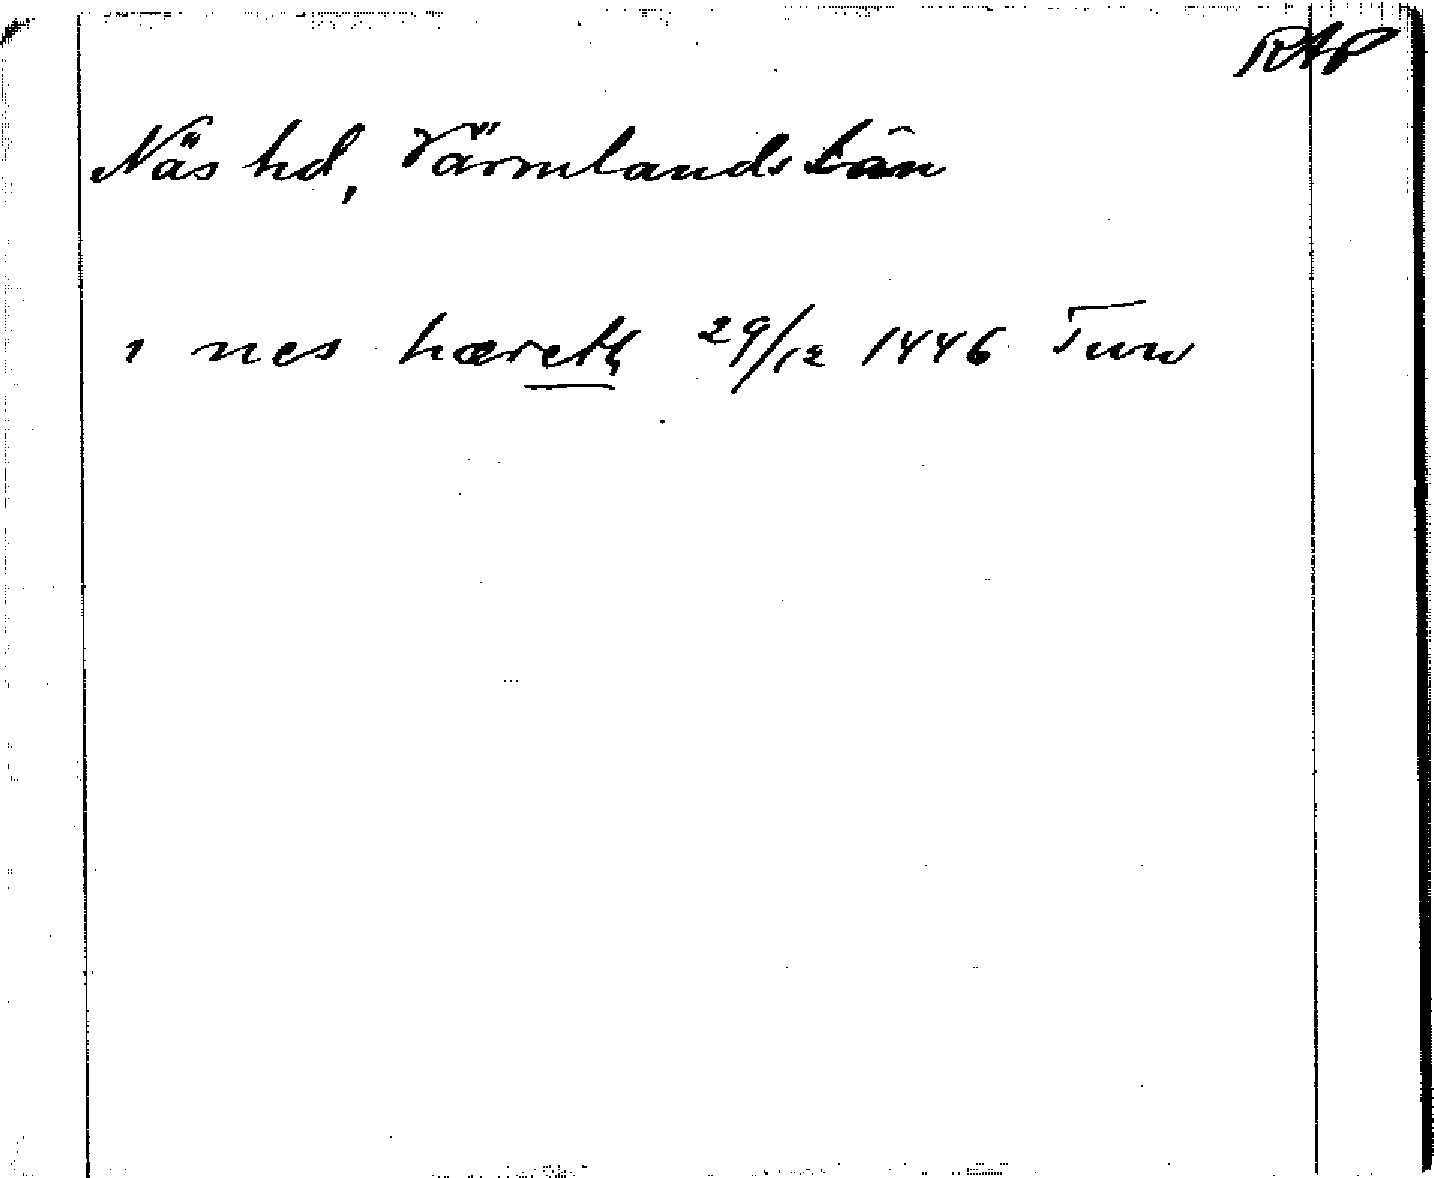 RAP
Näs hd, Värmlands län
i nes hæreth 29/12 1446 Tun